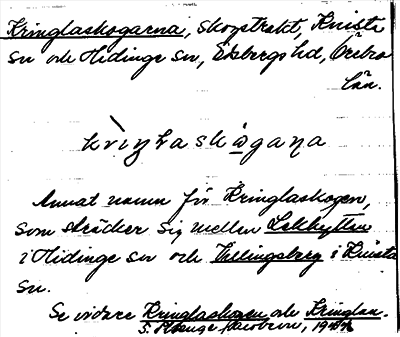 Kringlaskogarna, skogstrakt, Knista
sn och Hidinge sn, Edsbergs hd, Örebro
län.
krìŋlaskogaɳa
Annat namn för Kringlaskogen,
som sträcker sig mellan Lekhyttan
i Hidinge sn och Villingsberg i Knista
sn.
Se vidare Kringlaskogen och Kringlan.
S.